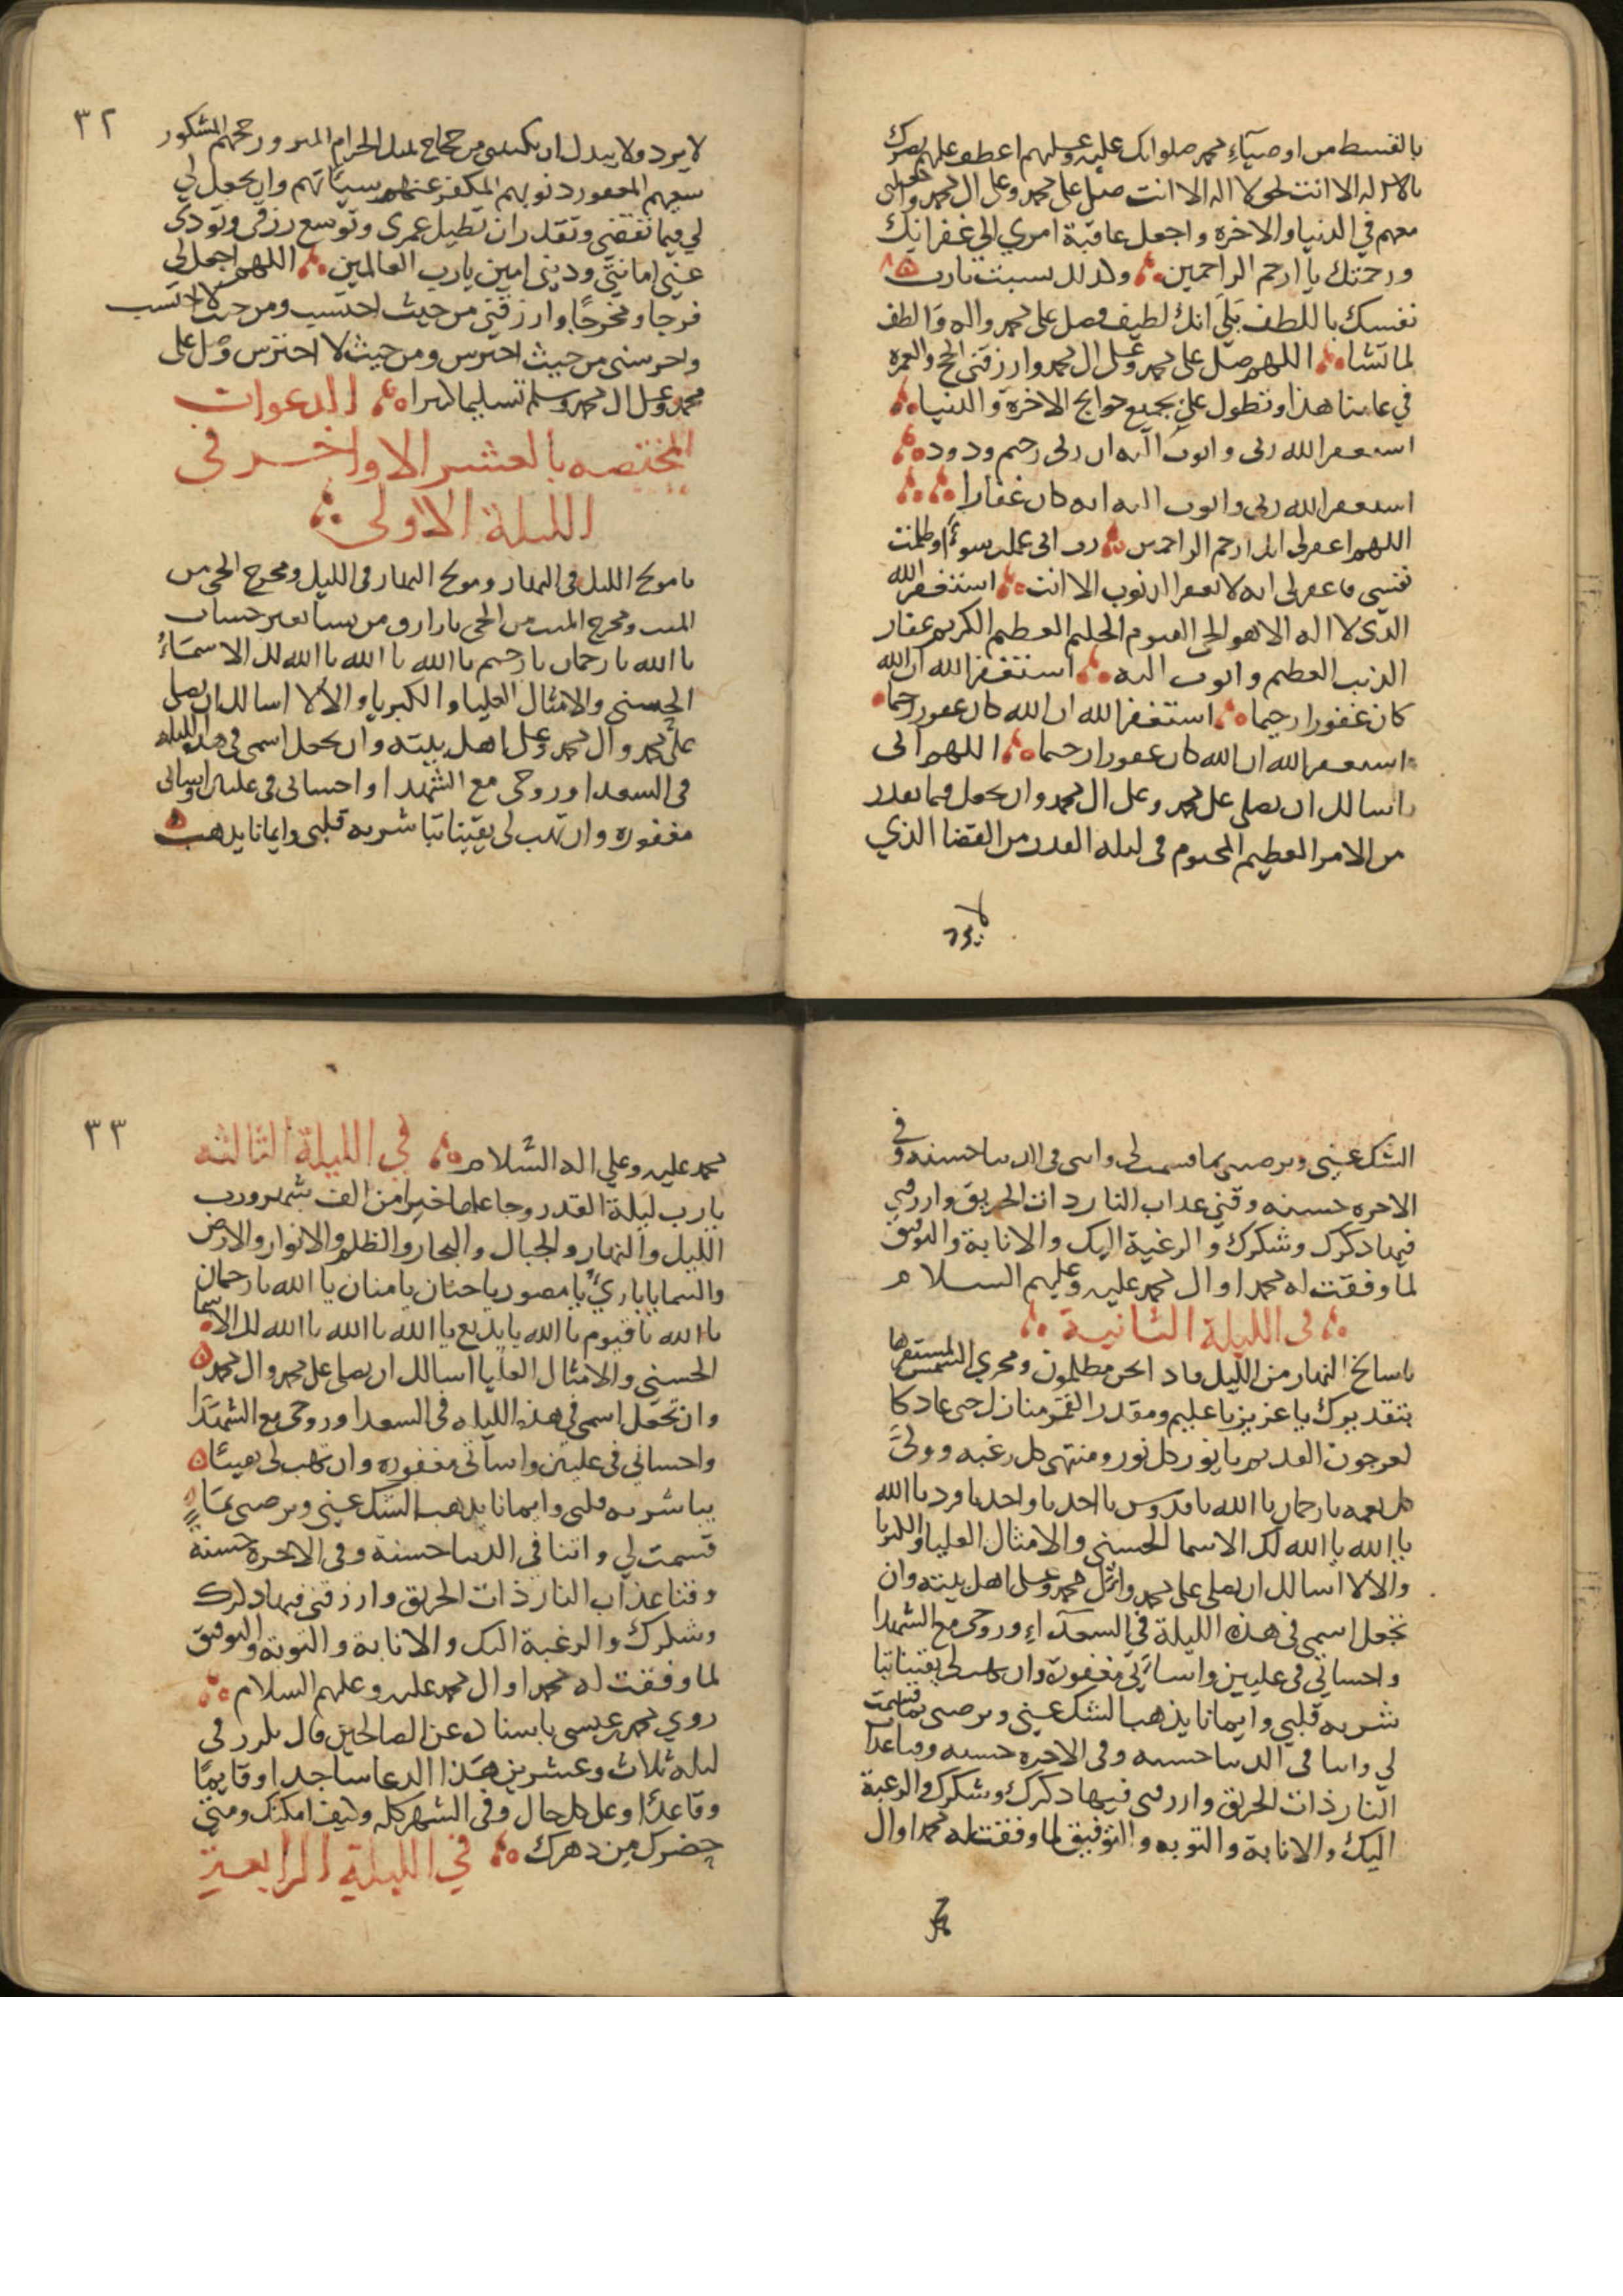 بالقسط من اوصياء محمد صلواتك عليه وعليهم اعطف عليهم نصرك
بالا اله الا انت بحق لا اله الا انت صل على محمد وعلى ال محمد واجعلني
معهم في الدنيا والاخرة واجعل عاقبة امري الى غفرانك
ورحمتك يا ارحم الراحمين وكذلك نسبت يا رب
نفسك باللطف بلى انك لطيف فصل على محمد واله والطف
لما تشا اللهم صل على محمد وعلى ال محمد وارزقني الحج والعمرة
في عامنا هذا وتطول علي بجميع حوايج الاخرة والدنيا
استغفر الله ربي واتوب اليه ان ربي رحيم ودود
استغفر الله ربي واتوب اليه انه كان غفارا
اللهم اغفر لي انك ارحم الراحمين رب اني عملت سوءا وظلمت
نفسي فاغفر لي انه لا يغفر الذنوب الا انت استغفر الله
الذي لا اله الا هو الحي القيوم الحليم العظيم الكريم غفار
الذنب العظيم واتوب اليه استغفر الله ان الله
كان غفورا رحيما استغفر الله ان الله كان غفورا رحيما
استغفر الله ان الله كان غفورا رحيما اللهم اني
اسالك ان تصلي على محمد وعلى ال محمد وان تجعل فيما تقدر
من الامر العظيم المحتوم في ليلة القدر من القضا الذي
لا يرد
٣٢
لا يرد ولا يبدل ان تكتبني من حجاج بيتك الحرام المبرور حجهم المشكور
سعيهم المغفور ذنوبهم المكفر عنهم سيئاتهم وان تجعل لي
لي فيما تقضي وتقدر ان تطيل عمري وتوسع رزقي وتودي
عني امانتي وديني امين يا رب العالمين اللهم اجعل لي
فرجا ومخرجا وارزقني من حيث احتسب ومن حيث لا احتسب
واحرسني من حيث احترس ومن حيث لا احترس وصل على
محمد وعلى ال محمد وسلم تسليما كثيرا الدعوات
المختصه بالعشر الاواخر في
الليلة الاولى
يا مولج الليل في النهار ومولج النهار في الليل ومخرج الحي من
الميت ومخرج الميت من الحي يا رازق من يشا بغير حساب
يا الله يا رحمان يا رحيم يا الله يا الله يا الله لك الاسماء
الحسنى والامثال العليا والكبريا والالا اسالك ان تصلي
على محمد وال محمد وعلى اهل بيته وان تجعل اسمي في هذه الليله
في السعدا وروحي مع الشهدا واحساني في عليين واساتي
مغفوره وان تهب لي يقينا تباشر به قلبي وايمانا يذهب
الشك عني وترضيني بما قسمت لي واتني في الدنيا حسنه وفي
الاخره حسنه وقني عذاب النار ذات الحريق وارزقني
فيها ذكرك وشكرك والرغبة اليك والانابة والتوفيق
لما وفقت له محمدا وال محمد عليه وعليهم السلام
في الليلة الثانية
يا سالخ النهار من الليل فاذا نحن مظلمون ومجري الشمس لمستقرها
بتقديرك يا عزيز يا عليم ومقدر القمر منازل حتى عاد كا
لعرجون القديم يا نور كل نور ومنتهى كل رغبه وولي
كل نعمه يا رحمان يا الله يا قدوس يا احد يا واحد يا فرد يا الله
يا الله يا الله لك الاسما الحسنى والامثال العليا والكبريا
والالا اسالك ان تصلي على محمد وال محمد وعلى اهل بيته وان
تجعل اسمي في هذه الليلة في السعداء وروحي مع الشهدا
واحساني في عليين واساتي مغفورة وان تهب لي يقينا تبا
شر به قلبي وايمانا يذهب الشك عني وترضيني بما قسمت
لي واتنا في الدنيا حسنه وفي الاخره حسنه وقنا عذاب
النار ذات الحريق وارزقني فيها ذكرك وشكرك والرغبة
اليك والانابة والتوبه والتوفيق لما وفقت له محمدا وال
محمد
٣٣
محمد عليه وعلى اله السلام في الليلة الثالثه
يا رب ليلة القدر وجاعلها خيرا من الف شهر ورب
الليل والنهار والجبال والبحار والظلم والانوار والارض
والسما يا باري يا مصور يا حنان يا منان يا الله يا رحمان
يا الله يا قيوم يا الله يا بديع يا الله يا الله يا الله لك الاسما
الحسنى والامثال العليا اسالك ان تصلي على محمد وال محمد
وان تجعل اسمي في هذه الليله في السعدا وروحي مع الشهدا
واحساني في عليين واساتي مغفوره وان تهب لي يقينا
يباشر به قلبي وايمانا يذهب الشك عني وترضيني بما
قسمت لي واتنا في الدنيا حسنة وفي الاخره حسنة
وقنا عذاب النار ذات الحريق وارزقني فيها ذكرك
وشكرك والرغبة اليك والانابة والتوبة والتوفيق
لما وفقت له محمدا وال محمد عليه وعليهم السلام
روى محمد بن عيسى باسناد عن الصالحين قال تكرر في
ليلة ثلاث وعشرين هذا الدعا ساجدا وقايما
وقاعدا وعلى كل حال وفي الشهر كله وكيف امكنك ومتى
حضرك من دهرك في الليلة الرابعة